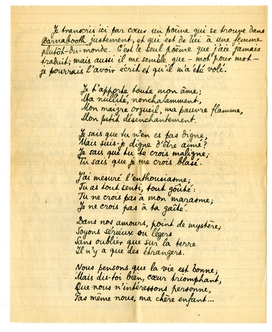 Je transcris ici par cœur un poème qui se trouve dans
Barnabooth, justement, et qui est dédié à une femme
plutôt du monde. C'est le seul poème que j'aie jamais
traduit; mais aussi il me semble que — mot pour mot —
je pourrais l'avoir écrit et qu'il m'a été volé.
Je t'apporte toute mon âme;
Ma nullité, nonchalamment,
Mon maigre orgueil, ma pauvre flamme,
Mon petit désenchantement.
Je sais que tu n'en es pas digne,
Mais suis-je digne d'être aimé?
Je sais que tu te crois maligne;
Tu sais que je me crois blasé.
J'ai mesuré l'enthousiasme;
Tu as tout senti, tout goûté:
Tu ne crois pas à mon marasme;
Je ne crois pas à ta gaîté.
Dans nos amours, point de mystère,
Soyons sérieux ou légers
Sans oublier que sur la terre
Il n'y a que des étrangers.
Nous pensons que la vie est bonne;
Mais dis-toi bien, cœur triomphant,
Que nous n'intéressons personne,
Pas même nous, ma chère enfant...